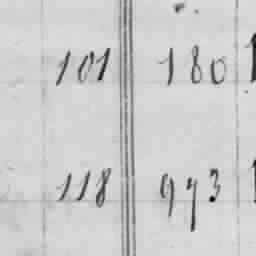 101 180
118 973